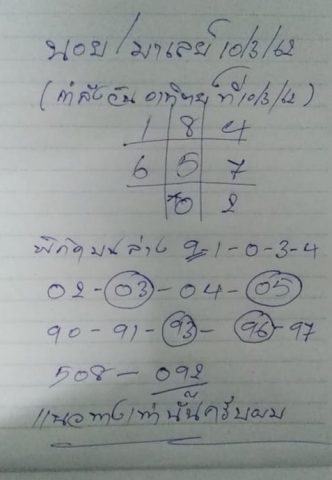 ฮอย/มาเลย์ 10/3/62
(กำลังวัน อาทิตย์ ที่ 10/3/62)
1 8 4
6 5 7
0 2
พิกัดบนล่าง 9-1-0-3-4
02-03-04-05
90-91-93-96-97
508-092
แนวทางเท่านั้นครับผม